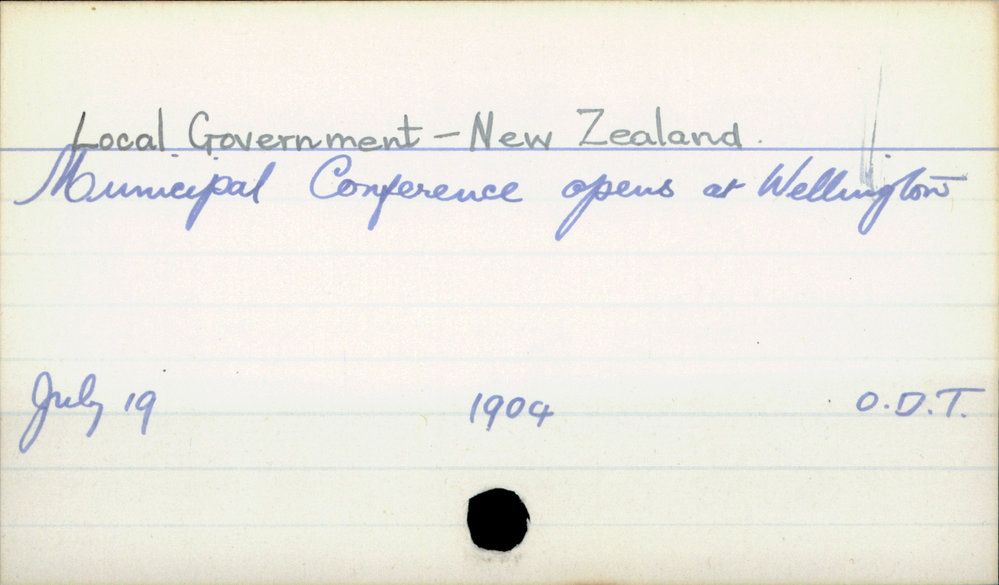 Local Government - New Zealand.
Municipal Conference opens at Wellington
July 19 1904 O.D.T.